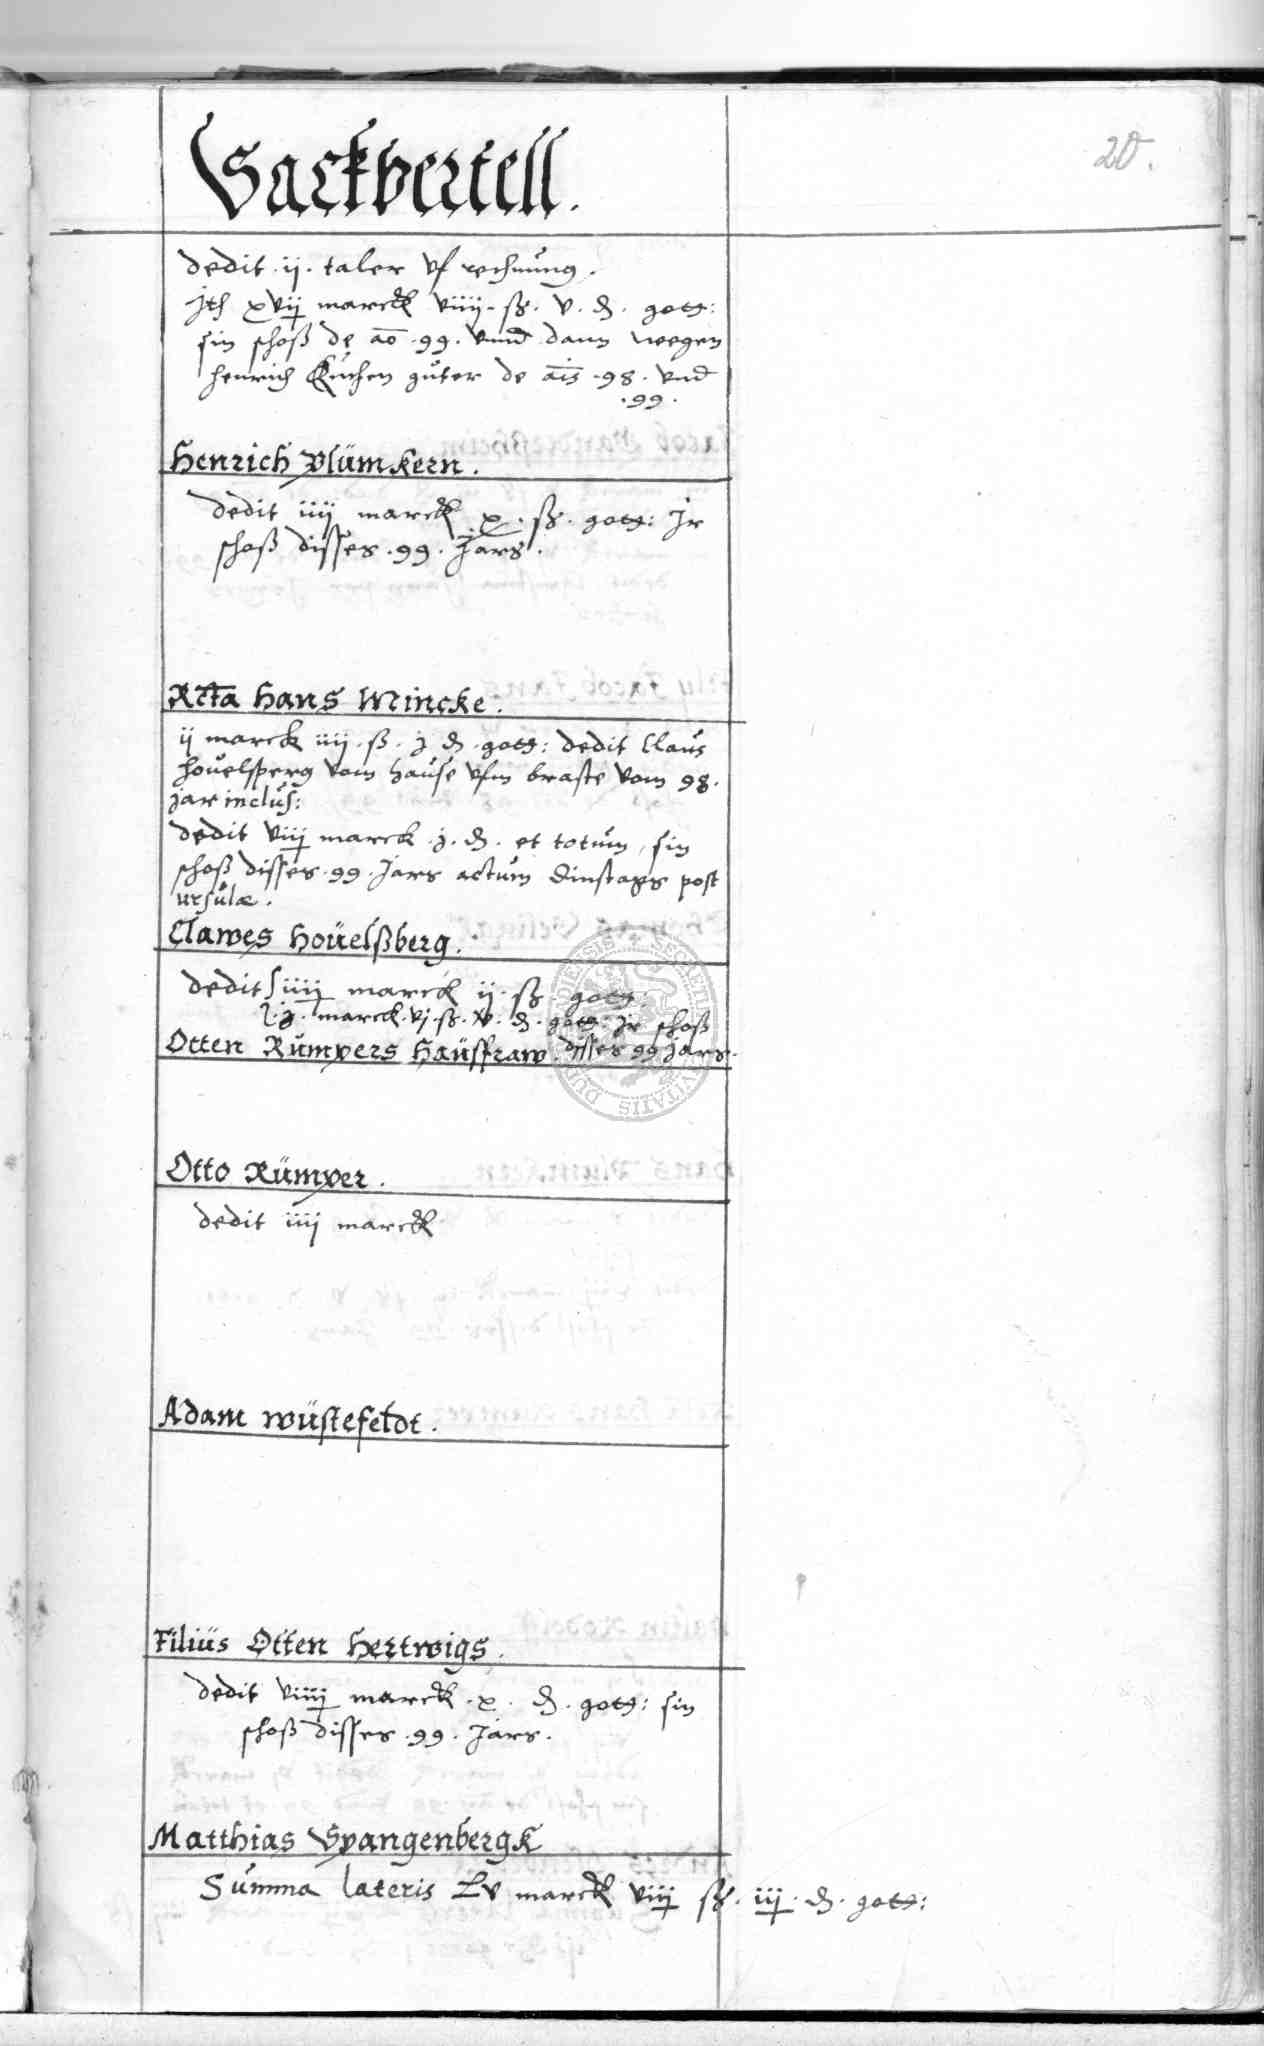 Sackvertell.
20.
dedit .ij. taler vf rechnung.
Jtẽ xvij marck viiij. ß. v. ₰. gotg:
sin schoß de ao .99. vnnd dann wegen
henrich Kuchen guter de ais .98. vnd
.99.
Henrich Plümkern.
dedit iiij marck x. ß. gotg: Jr
schoß disses .99. Jars.
Rcta Hans Mincke.
ij marck iiij. ß. j ₰. gotg: dedit Claus
houelsperg vom hause vfm braste vom 98.
jar inclus:
dedit viij marck .j. ₰. et totum, sin
schoß disses .99. Jars actum Dinstags post
ursulæ.
Clawes Hoüelßberg.
dedit iiij marck ij. ß. gotg.
.j. marck. vj. ß. v. ₰. gotg: Jr schoß
disses 99 jars.
Otten Rümpers Haüsfraw.
Otto Rümper.
dedit iiij marck
Adam wüstefeldt.
Filiüs Otten Hertwigs.
dedit viiij marck .x. ₰. gotg: sin
schoß disses .99. Jars.
Matthias Spangenbergk
Summa lateris Lv marck viij ß. iij. ₰. gotg: